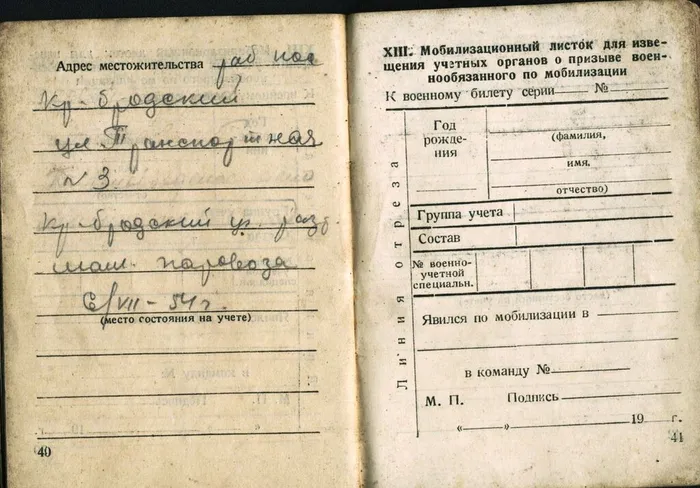 Адрес местожительства раб пос
Кр-бродский
ул Транспортная
№ 3
Кр-бродский уг. разр.
маш. паровоза
6/VII-54 г.
(место состояния на учете)
40
XIII. Мобилизационный листок для изве-
щения учетных органов о призыве воен-
нообязанного по мобилизации
К военному билету серии №
Линия отреза
Год
рожде-
ния
(фамилия,
имя,
отчество)
Группа учета
Состав
№ военно-
учетной
специальн.
Явился по мобилизации в
в команду №
М. П. Подпись
« » 19 г.
41